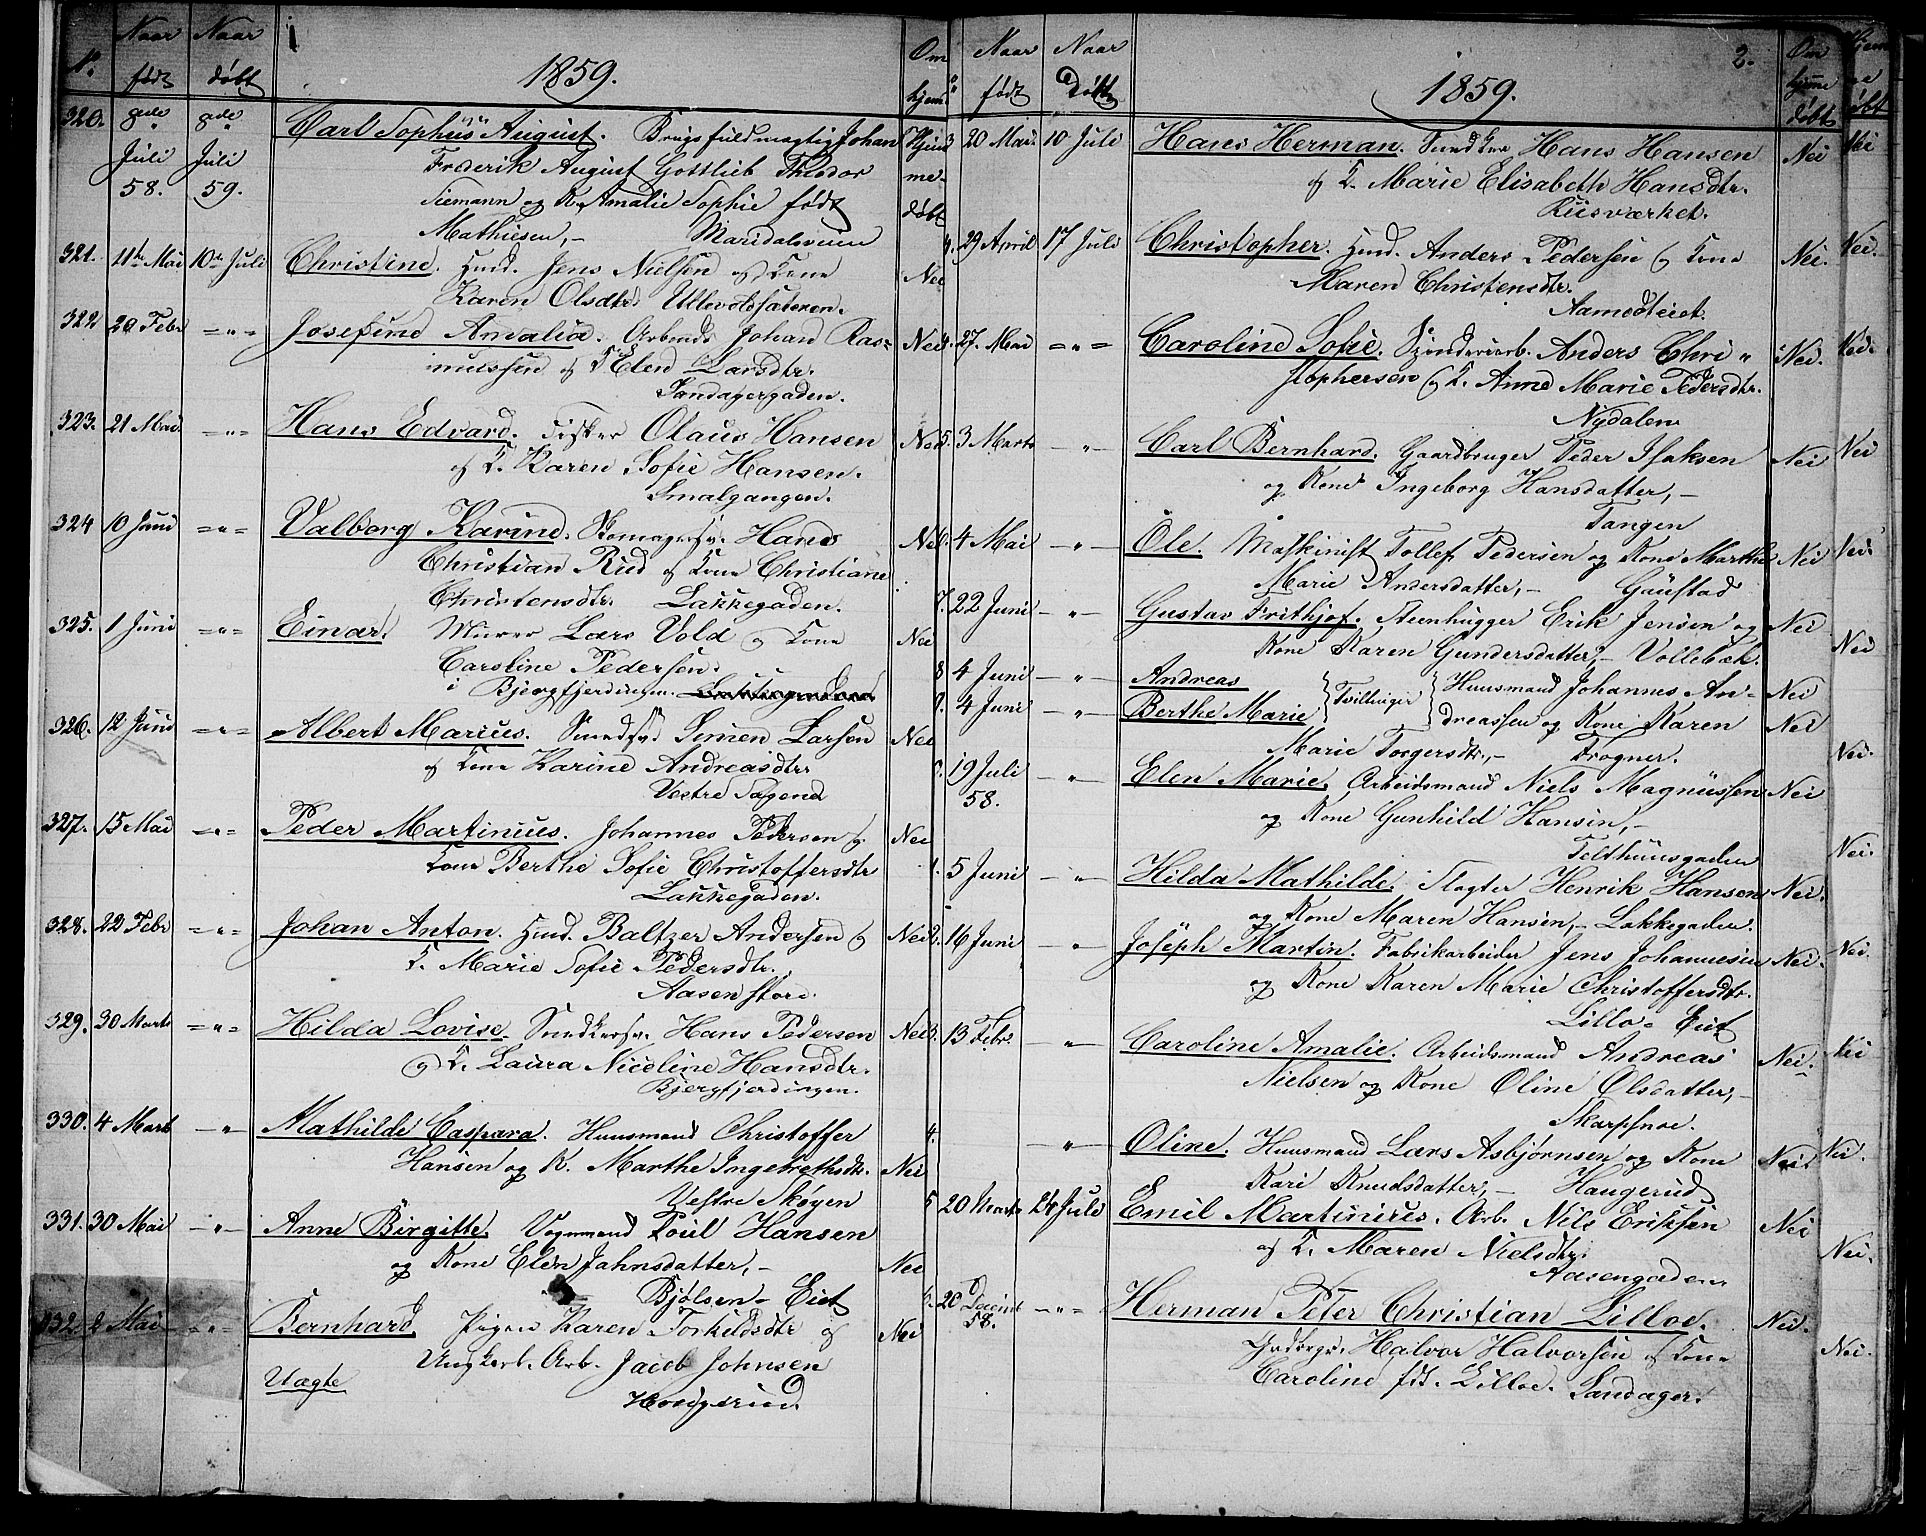 Nr. Naar født Naar døbt 1859. Om hjem
320. 9de Juli 58. 9de Juli 59. Carl Sophus August. Brugsfuldmægtig Johan Hjem
Frederik August Gottlieb Theodor me-
Siemann og K. Amalie Sophie født døbt
Mathiesen,- Maridalsveien
321. 11te Mai 10de Juli Christine. Huusd. Jens Nielsen og Kone Nei
Karen Olsdtr. Ullevoldsæteren.
322 20 Febr. -"- Josefine Amalia. Arbmd. Johan Ras= Nei
mussen og K Elen Larsdtr.
Sandagergaden.
323. 21 Mai. -"- Hans Edvard. Fisker Olaus Hansen Nei
og K. Karen Sofie Hansen.
Smalgangen.
324 10 Juni -"- Valborg Karine. Skomagersv. Hans Nei
Christian Rud og Kone Christiane
Christensdtr. Lakkegaden.
325. 1 Juni -"- Einar. Murer Lars Vold og Kone Nei
Caroline Pedersen.
i Bjergfjerdingen.
326. 12 Juni -"- Albert Marius. Smedsv. Simen Larsen Nei
og Kone Karine Andreasdtr
Vestre Sagene
327. 15 Mai -"- Peder Martinius. Johannes Pedersen og Nei
Kone Berthe Sofie Christoffersdtr
Lakkegaden.
328. 22 Febr -"- Johan Anton. Huusd. Baltzer Andersen og Nei
K. Marie Sofie Pedersdtr.
Aasen store.
329. 30 Marts -"- Hilda Lovise. Snedkersv. Hans Pedersen Nei
og K. Laura Nicoline Hansdtr.
Bjergfjerdingen.
330. 4 Marts -"- Mathilde Caspara. Huusmand Christoffer
Hansen og K. Marthe Ingebrethsdtr. Nei
Vestre Skøyen
331. 30 Mai -"- Anne Birgitte. Vognmand Poul Hansen
og Kone Elen Jahnsdatter,- Nei
Bjølsen-Eiet
332. 2 Mai -"- Bernhard. Pigen Karen Torkildsdtr og Nei
Ungkarl. Arb. Jacob Johnsen
Uægte
Hougerud
Naar født Naar døbt 1859. 2. Om hjemme døbt
3 20 Mai. 10 Juli Hans Herman. Snedker Hans Hansen Nei
og K. Marie Elisabeth Hansdtr.
Riisværket.
4. 29 April 17 Juli Christopher. Huusd. Anders Pedersen og Kone Nei.
Maren Christensdtr.
27. Mai -"- Caroline Sofie. Anders Chri= Nei.
stophersen og K. Anne Marie Pedersdtr.
Nydalen
5. 3 Marts -"- Carl Bernhard. Gaardbruger Peder Isaksen Nei
og Kone Ingeborg Hansdatter,-
Tangen
4 Mai -"- Ole. Maskinist Tollef Pedersen og Kone Marthe Nei
Marie Andersdatter,- Gaustad
7. 22 Juni -"- Gustav Frithjof. Steenhugger Erik Jensen og Nei
Kone Karen Gundersdatter,- Vollebæk.
8 4 Juni -"- Andreas } Tvillinger { Huusmand Johannes An- Nei
9. 4 Juni -"- Berthe Marie dreassen og Kone Karen Nei
Marie Torgersdtr,- Frogner.
0. 19 Juli 58. -"- Elen Marie. Arbeidsmand Niels Magnussen Nei
og Kone Gunhild Hansen,-
Telthuusgaden
1. 5 Juni -"- Hilda Mathilde. Slagter Henrik Hansen Nei.
og Kone Maren Hansen,- Lakkegaden.
2. 16 Juni -"- Joseph Martin. Fabrikarbeider Jens Johannesen Nei.
og Kone Karen Marie Christoffersdtr.
Lillo-Eiet
3. 13 Febr. -"- Caroline Amalie. Arbeidsmand Andreas Nei.
Nielsen og Kone Oline Olsdatter,-
Skarpsnoe.
4. -"- Oline. Huusmand Lars Asbjørnsen og Kone Nei
Kari Knudsdatter,- Haugerud
5 20 Marts 24 Juli Emil Martinius. Arb. Nils Eriksen Nei
og K. Maren Nielsdtr.
Aasengaden
6. 20 Decemb 58. -"- Herman Peter Christian Lilloe. Nei.
Halvor Halvorsen og Kone
Caroline fdt. Lilloe. Sandager.
Hjem
døbt
Nei
Nei.
Nei.
Nei
Nei
Nei
Nei.
Nei.
Nei.
Nei
Nei.
Nei.
Nei.